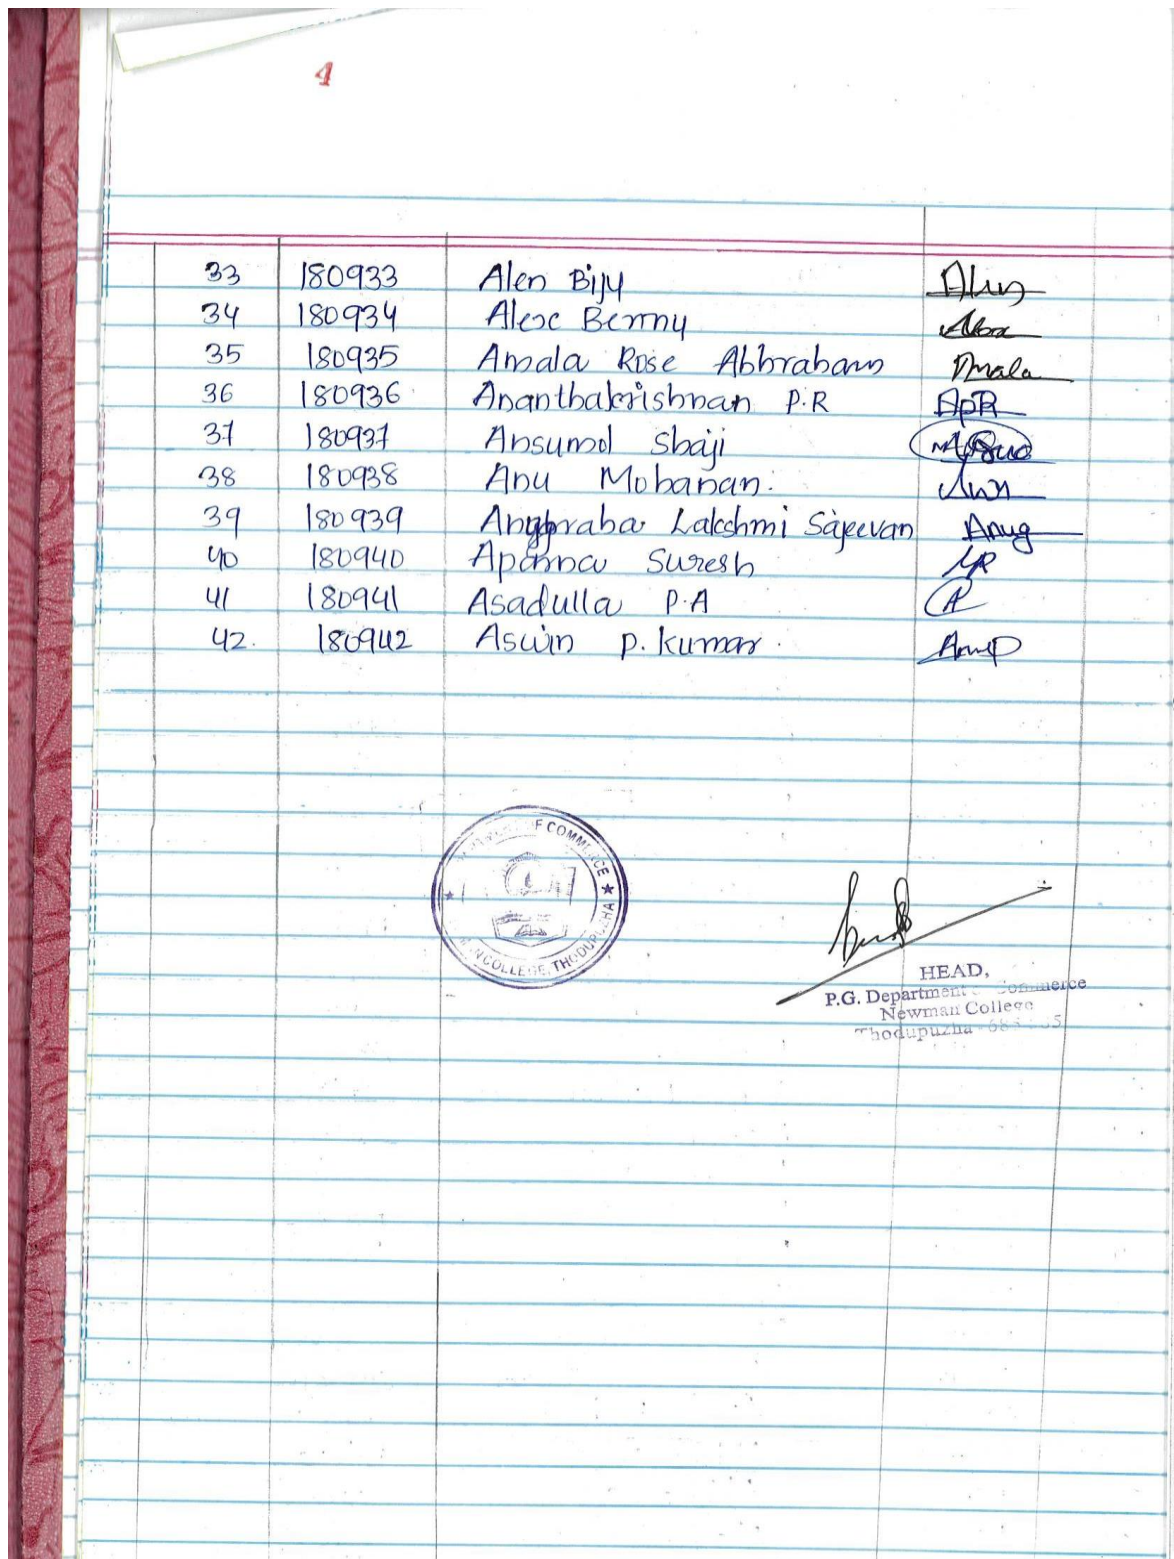 4
33 180933 Alen Biju Alen
34 180934 Alex Benny Alex
35 180935 Amala Rose Abhraham Amala
36 180936 Ananthakrishnan P.R APR
37 180937 Ansumol Shaji
38 180938 Anu Mohanan. Anu
39 180939 Anugraha Lakshmi Sajeevan Anug
40 180940 Aparna Suresh
41 180941 Asadulla P.A A
42. 180942 Aswin P. Kumar.
OF COMMERCE ★
COLLEGE, THODUPUZHA
HEAD,
P.G. Department Commerce
Newman College
Thodupuzha